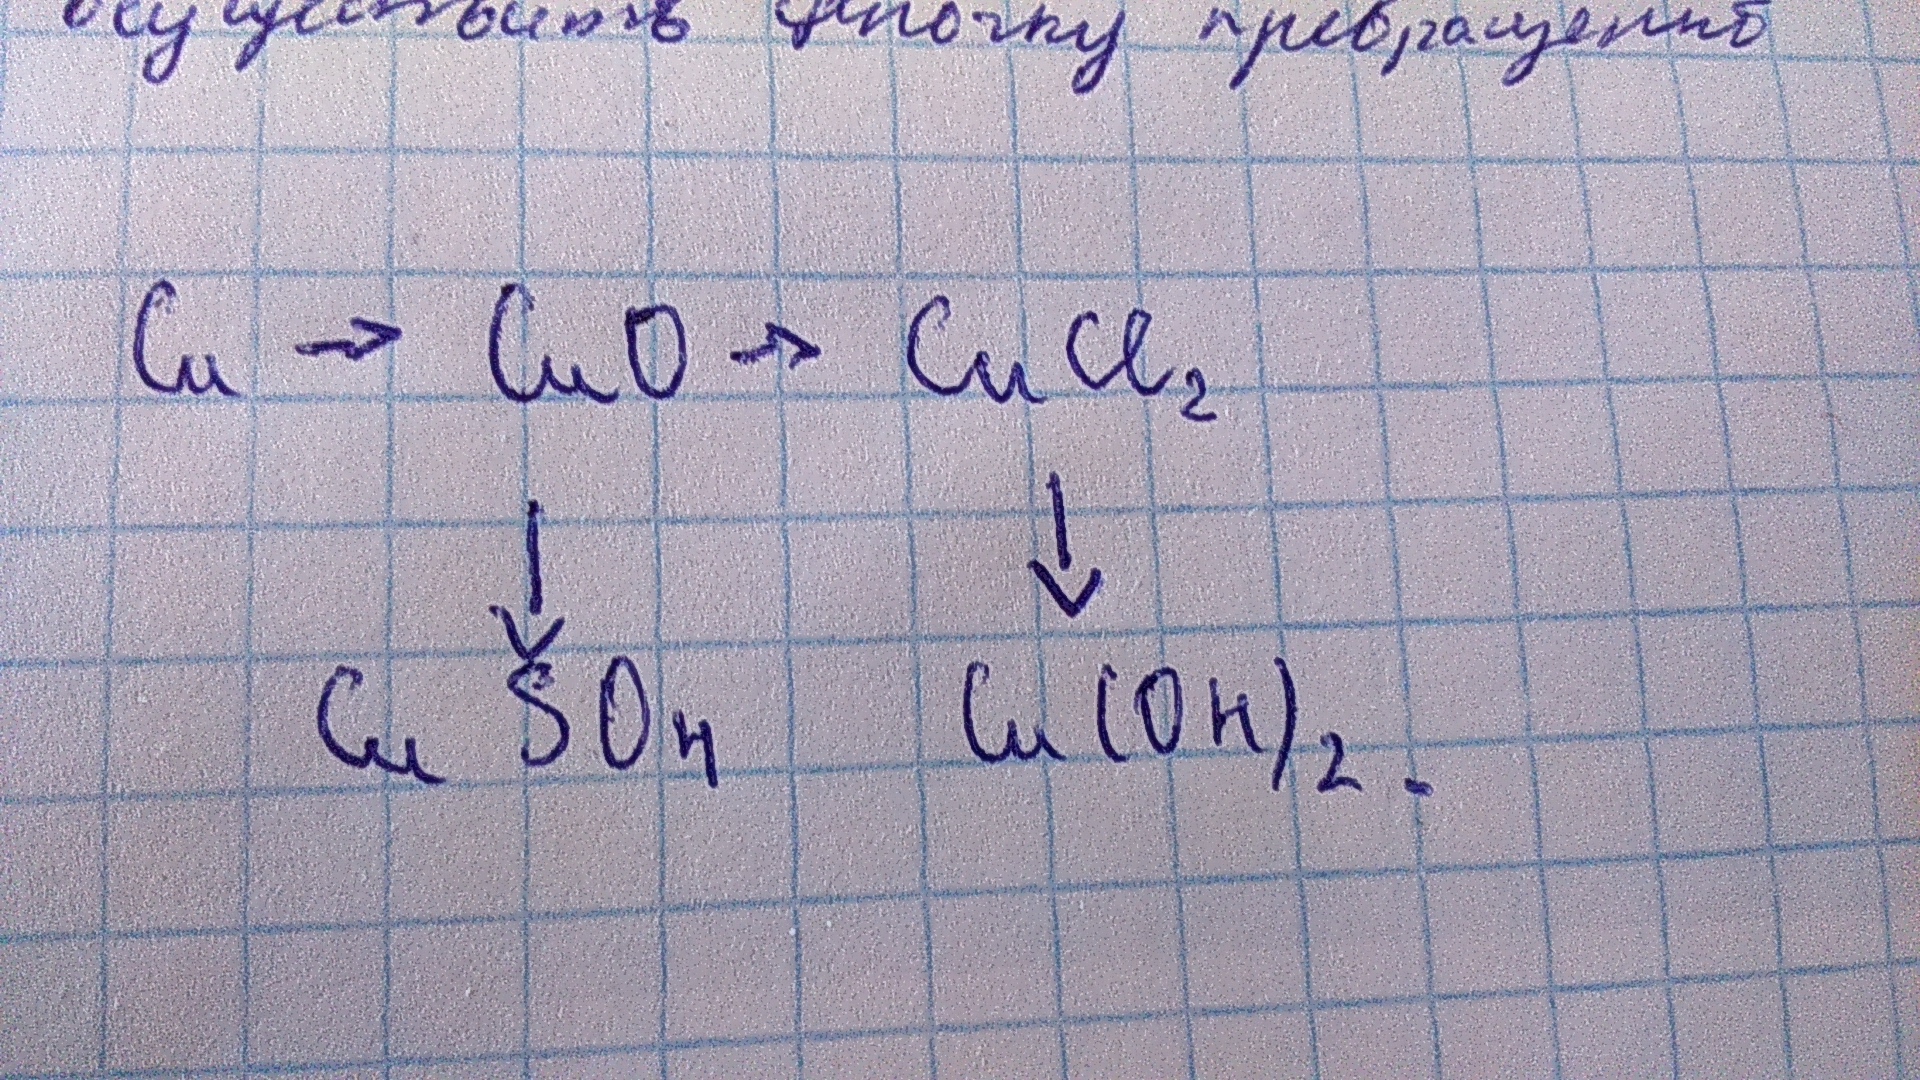 осуществить цепочку превращений
Cu → CuO → CuCl₂
↓ ↓
CuSO₄ Cu(OH)₂.